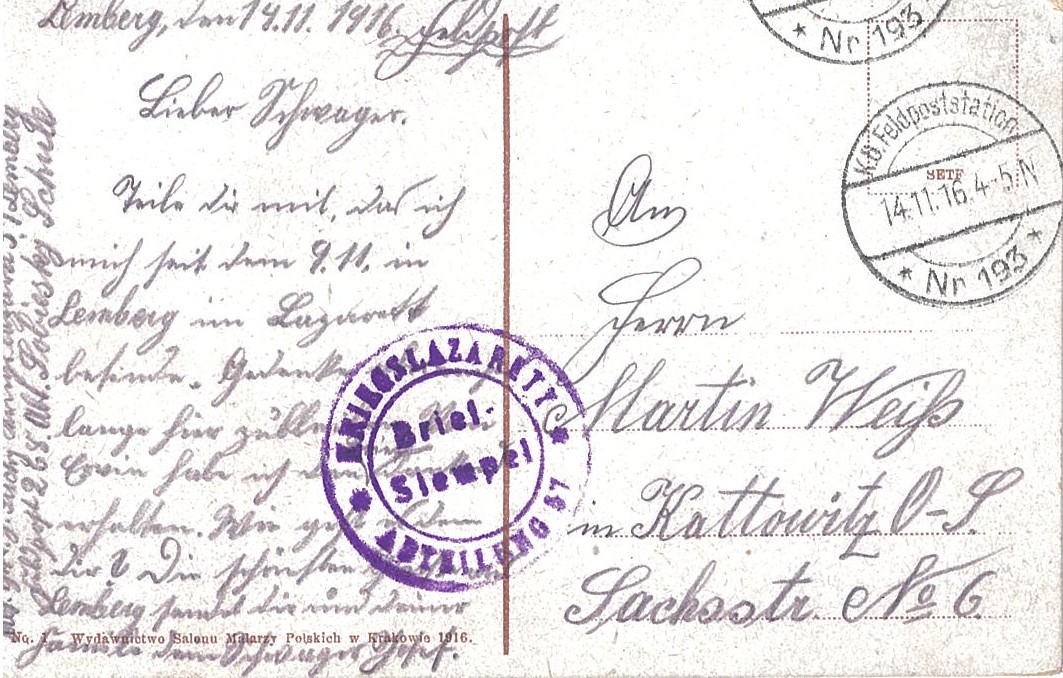 Lemberg, den 14.11.1916. Feldpost
Lieber Schwager.
Teile dir mit, das ich
mich seit dem 9.11. in
Lemberg im Lazarett
befinde. Gedenke
lange hier zu
Erwin habe ich
erhalten. Wie geht
dir? Die schönsten
Lemberg sendet dir und deiner
Familie dein Schwager Josef.
Feldpost 265 Abt. Sobiesky Schule
No. 1. Wydawnictwo Salonu Malarzy Polskich w Krakowie 1916.
KRIEGSLAZARETT
Brief-
Stempel
ABTEILUNG 67
Nr 193
K.u.K. Feldpoststation
SETF
14.11.16.4-5.N
Nr 193
An
Herrn
Martin Weiß
in Kattowitz O-S
Sachsstr. No 6